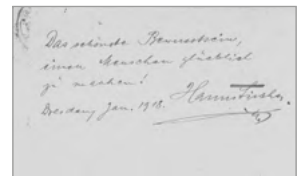 Das schönste Bewusstsein,
einen Menschen glücklich
zu machen!
Dresden, Jan. 1918. Hanns Fischer.